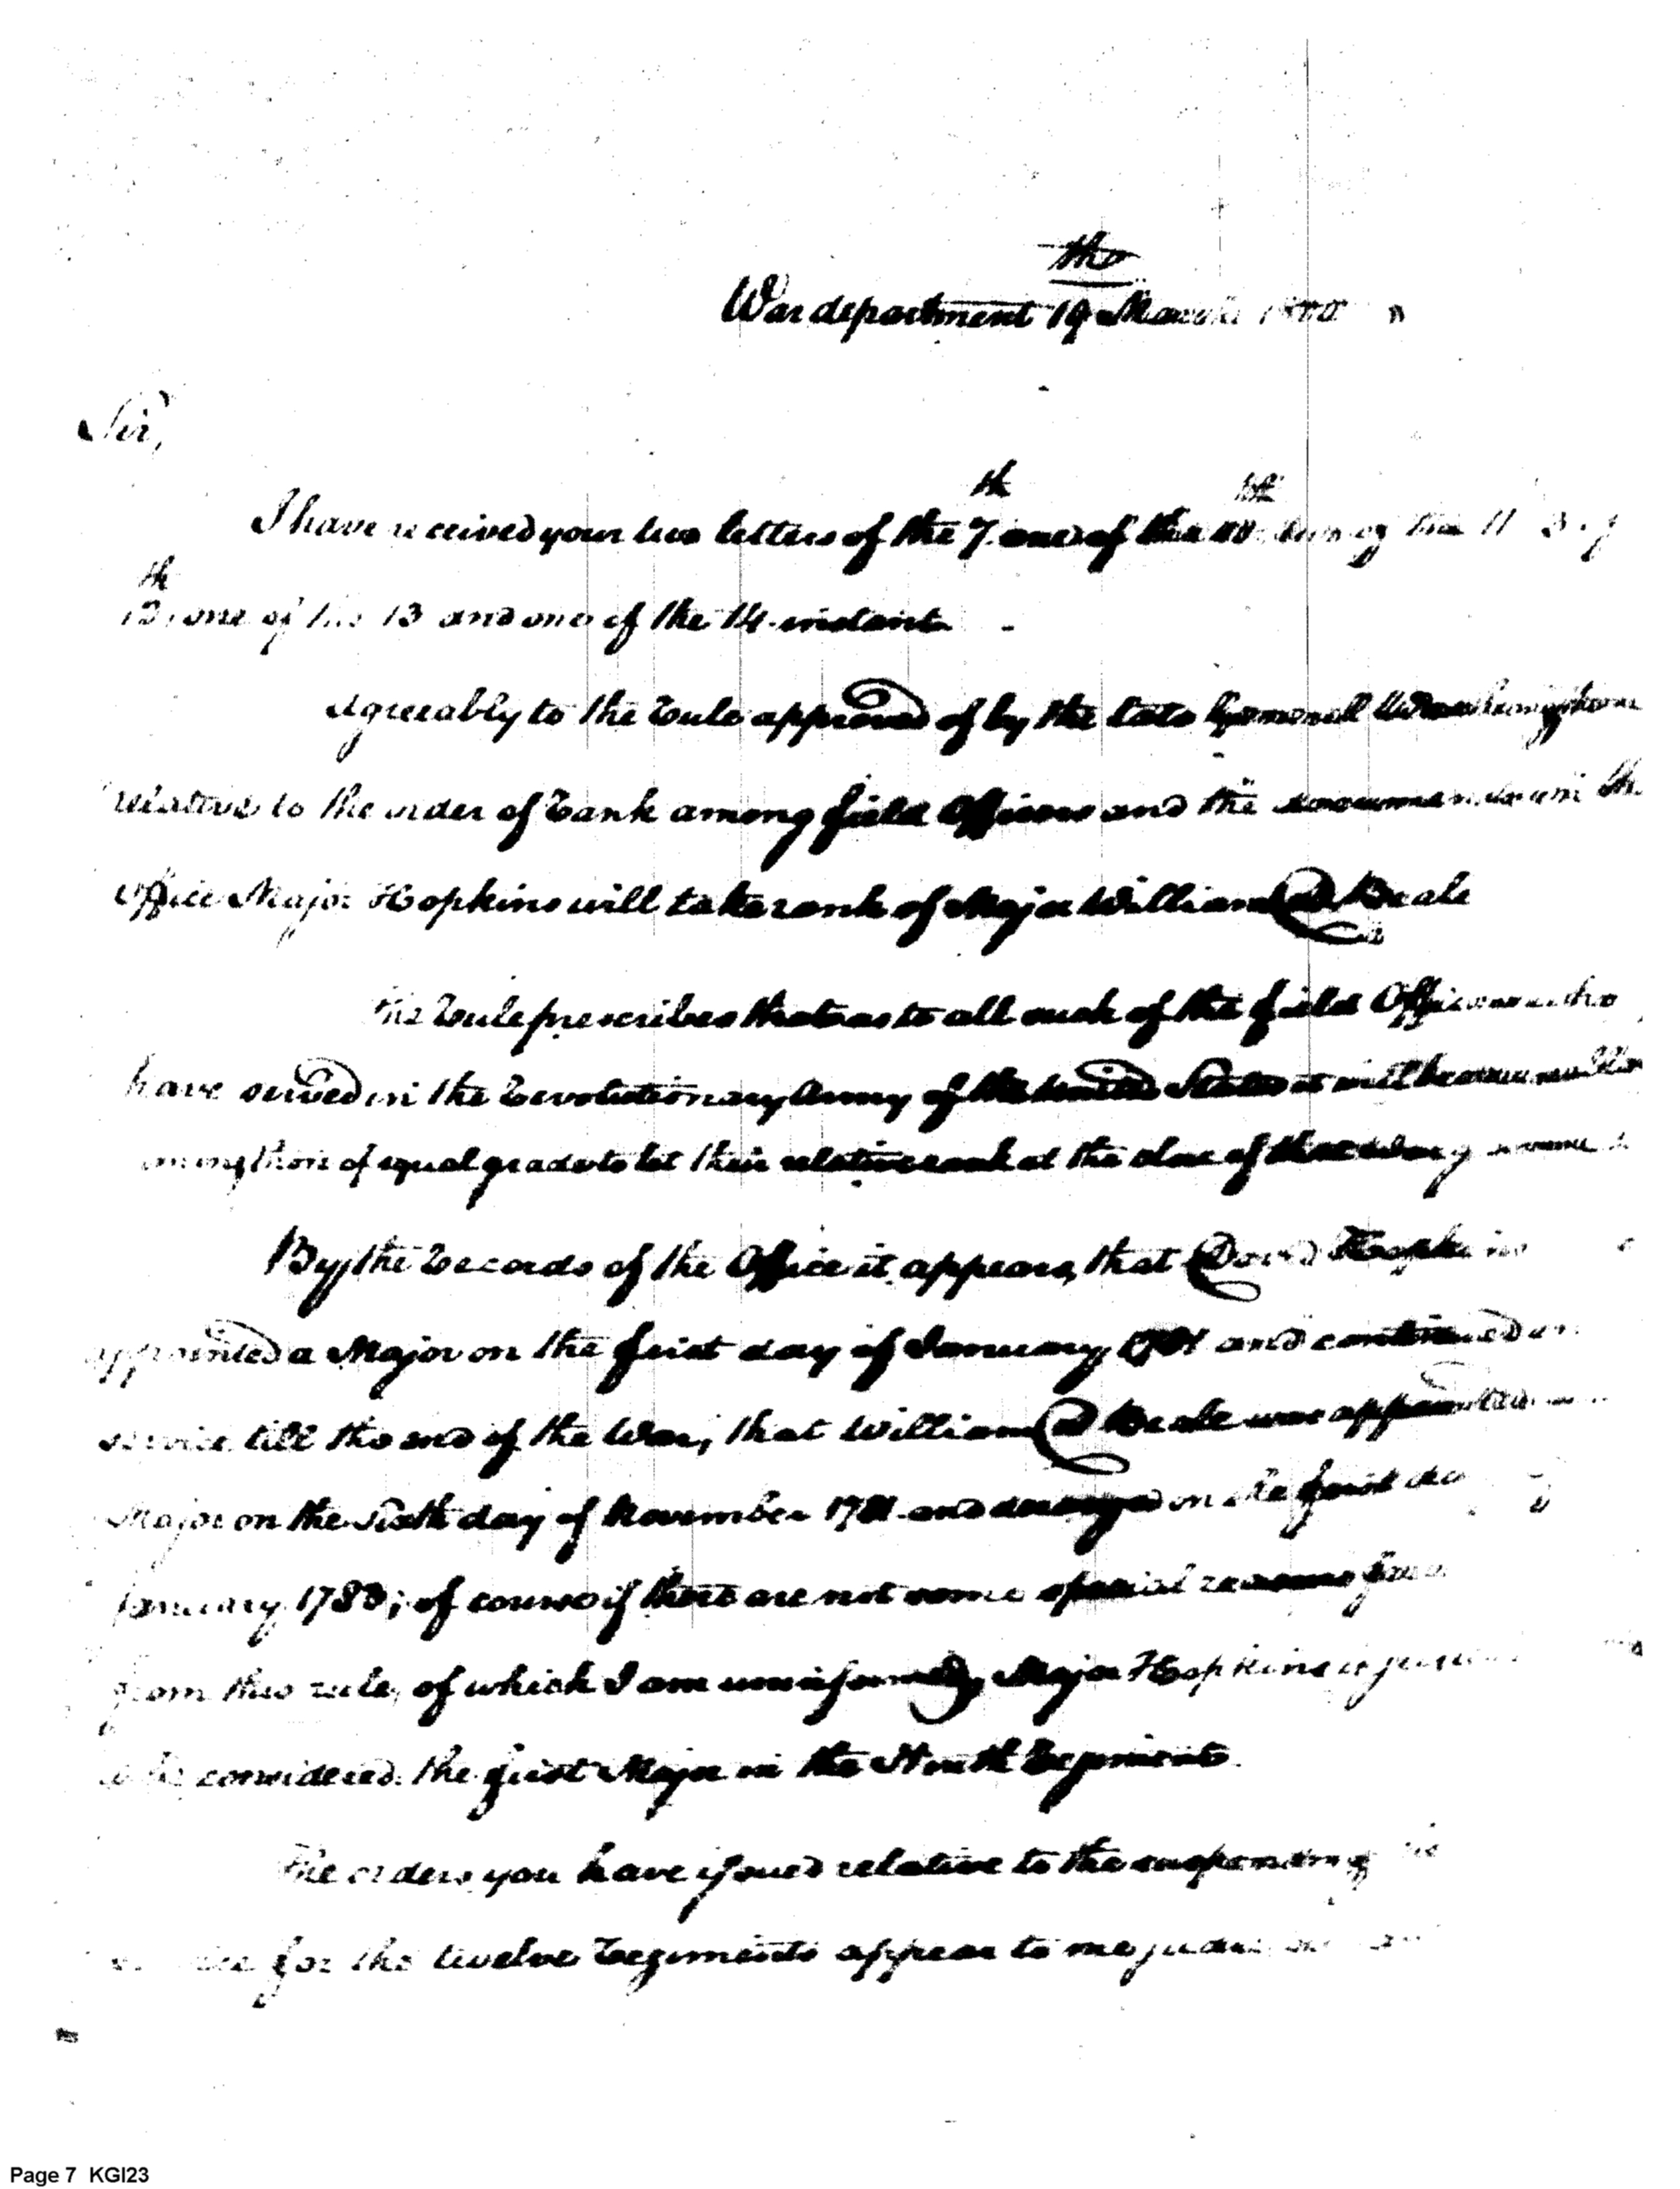 th
War department 19 March 1800
Sir,
th th
I have received your two letters of the 7. one of the 10 of the 11
th
12, one of the 13 and one of the 14 instant
Agreeably to the Rule approved of by the late General Washington
relative to the order of Rank among field Officers and the
Office Major Hopkins will take rank of Major William D Beale
The Rule prescribes that as to all such of the field Officers who
have served in the Revolutionary Army of the United States it will be
among those of equal grade to let their relative rank at the close of that war govern
By the Records of the Office it appears, that David Hopkins
appointed a Major on the first day of January 1781 and continued in
service till the end of the War, that William D Beale was appointed
Major on the Sixth day of November 1781 and deranged on the first day
January 1783; of course if there are not some special reasons
from this rule, of which I am uninformed, Major Hopkins is
to be considered the first Major in the Ninth Regiment.
The orders you have issued relative to the suspending
for the twelve Regiments appear to me
Page 7 KGI23